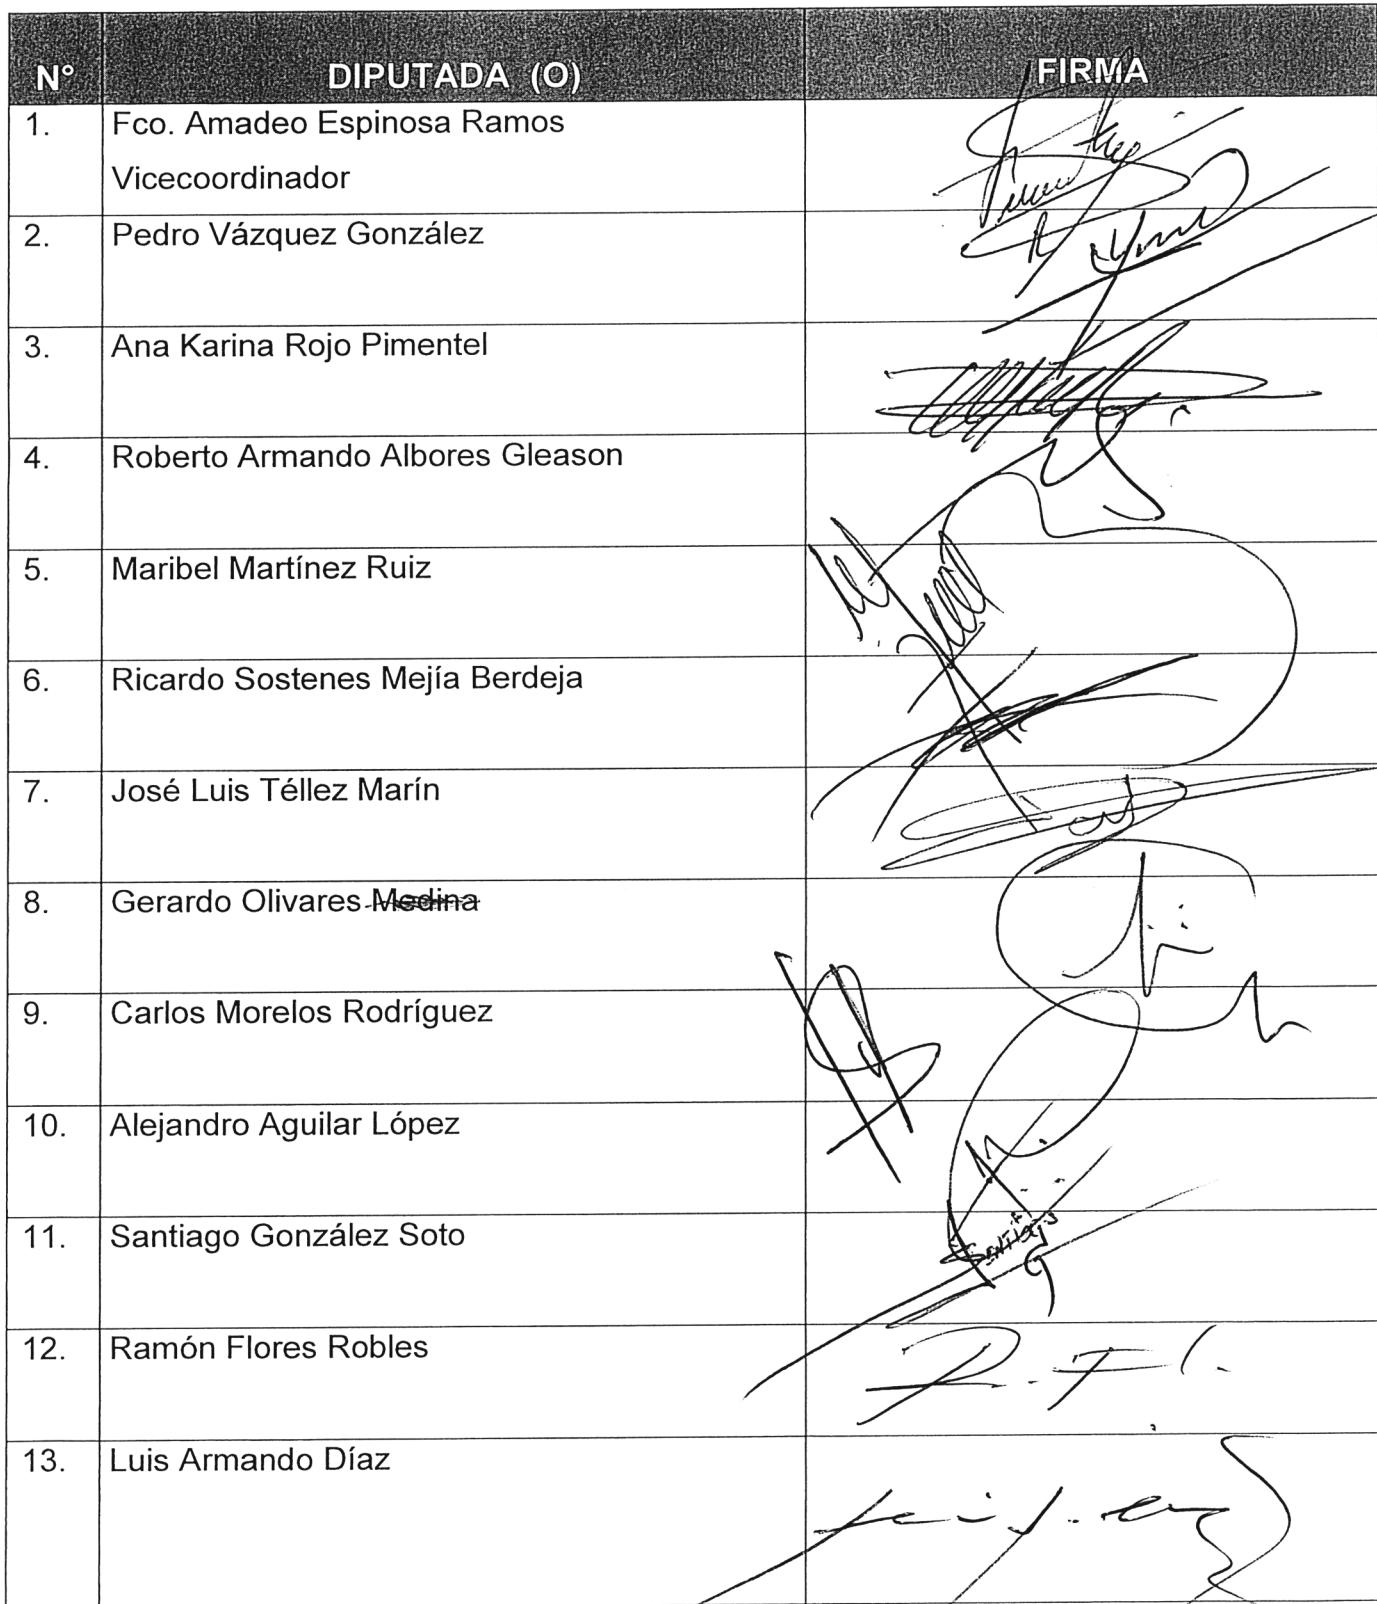 N° DIPUTADA (O) FIRMA
1. Fco. Amadeo Espinosa Ramos
Vicecoordinador
2. Pedro Vázquez González
3. Ana Karina Rojo Pimentel
4. Roberto Armando Albores Gleason
5. Maribel Martínez Ruiz
6. Ricardo Sostenes Mejía Berdeja
7. José Luis Téllez Marín
8. Gerardo Olivares Medina
9. Carlos Morelos Rodríguez
10. Alejandro Aguilar López
11. Santiago González Soto
12. Ramón Flores Robles
13. Luis Armando Díaz